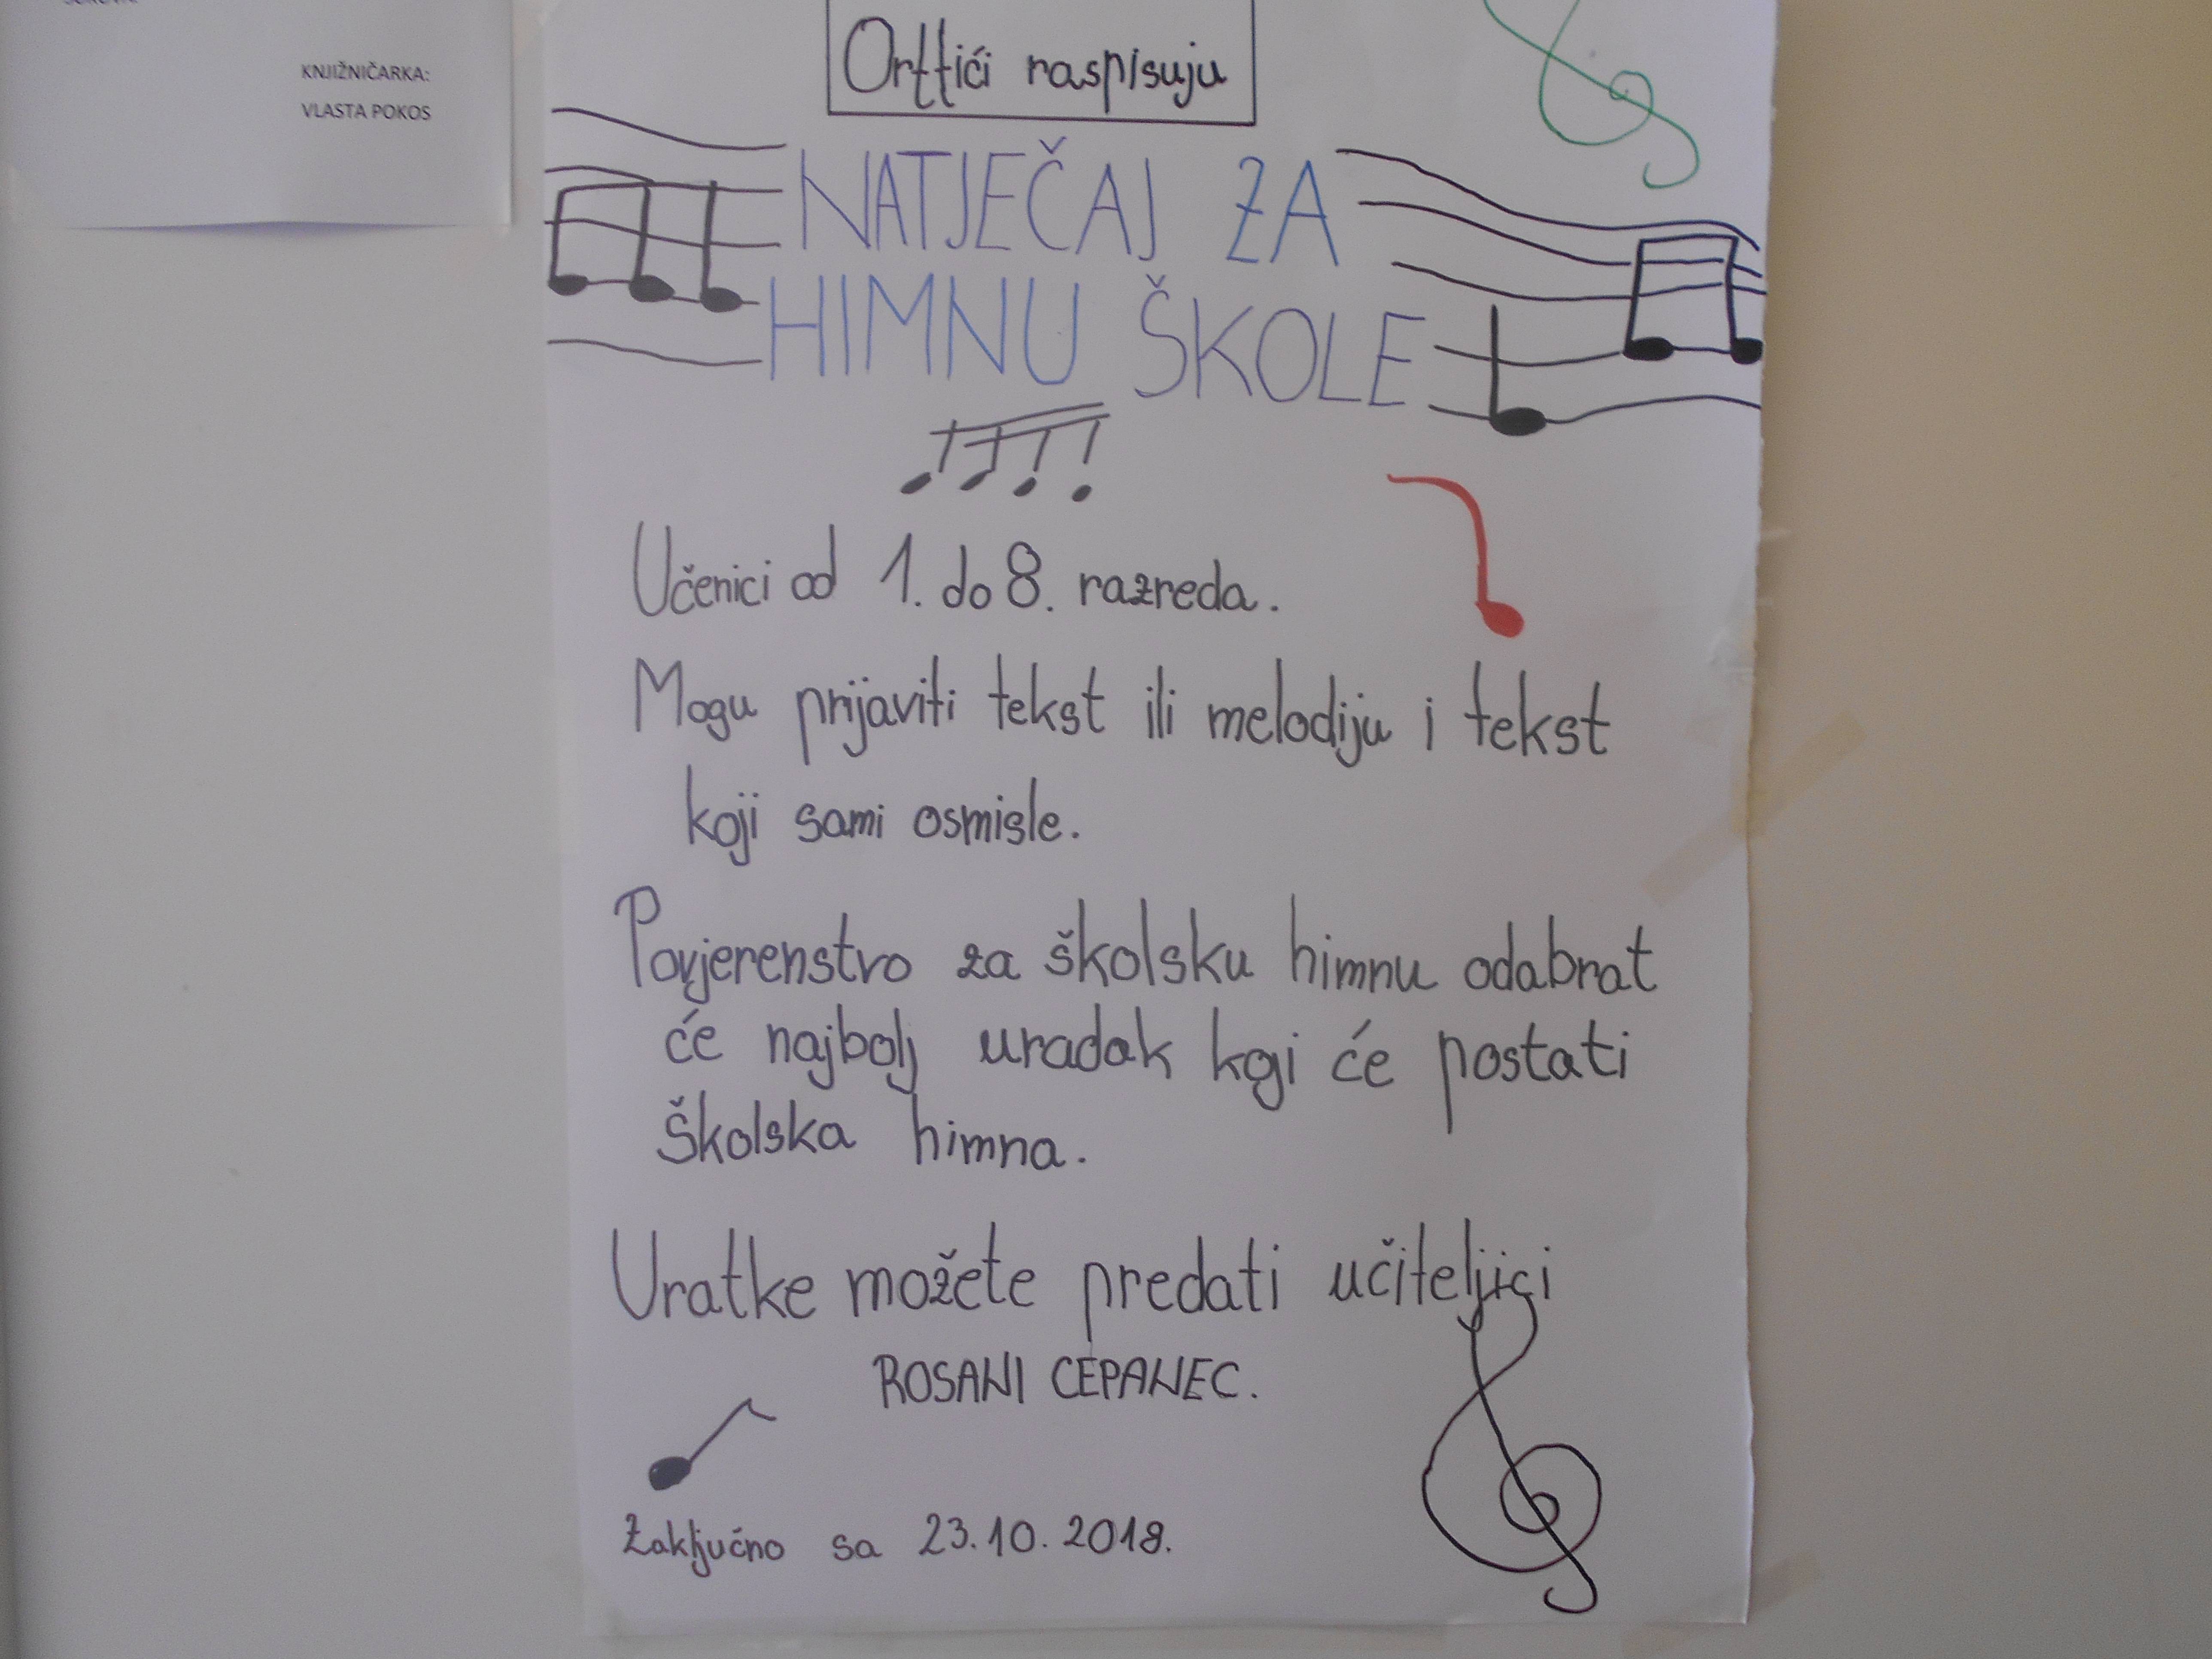 KNJIŽNIČARKA:
VLASTA POKOS
Orffići raspisuju
NATJEČAJ ZA
HIMNU ŠKOLE
Učenici od 1. do 8. razreda.
Mogu prijaviti tekst ili melodiju i tekst
koji sami osmisle.
Povjerenstvo za školsku himnu odabrat
će najbolj uradak koji će postati
školska himna.
Uratke možete predati učiteljici
ROSANI CEPANEC.
Zaključno sa 23.10.2018.